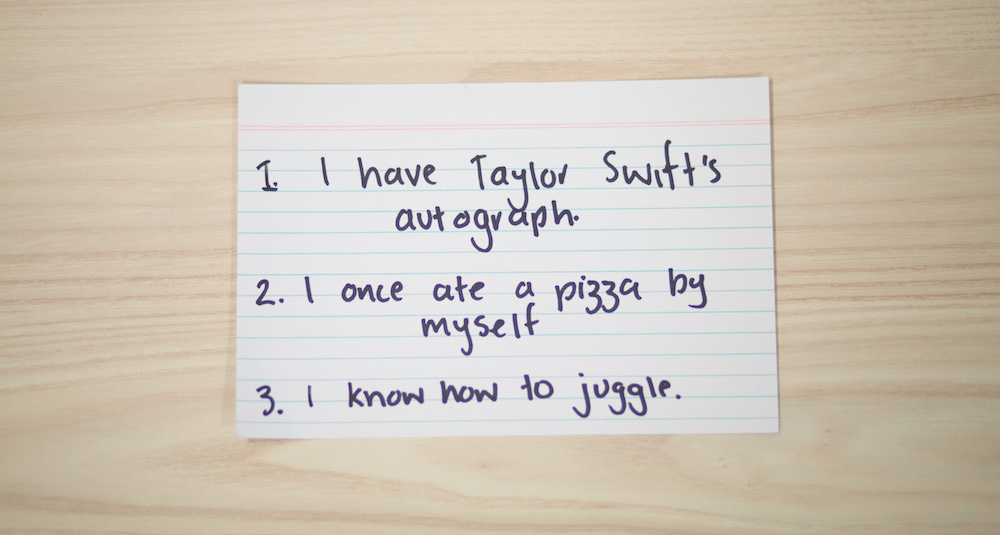 1. I have Taylor Swift's
autograph.
2. I once ate a pizza by
myself
3. I know how to juggle.